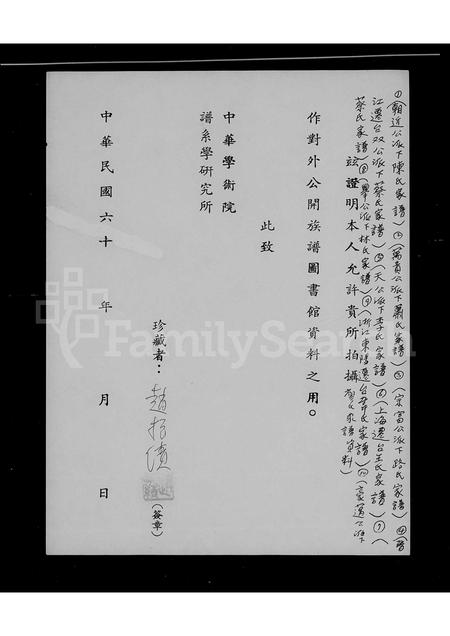 ①(朝近公派下陳氏家譜)②(萬貴公派下蕭氏家譜)③(宗富公派下路氏家譜)④(晉
江遷台双公派下蔡氏家譜)⑤(天公派下李氏家譜)⑥(上海遷台王氏家譜)⑦(
蔡氏家譜)⑧(舉公派下林氏家譜)⑨(浙江東陽遷台 氏家譜)⑩(
玆證明本人允許貴所拍攝 氏家譜資料)
作對外公開族譜圖書館資料之用。
此致
中華學術院
譜系學研究所
珍藏者:
(簽章)
中華民國六十 年 月 日
FamilySearch